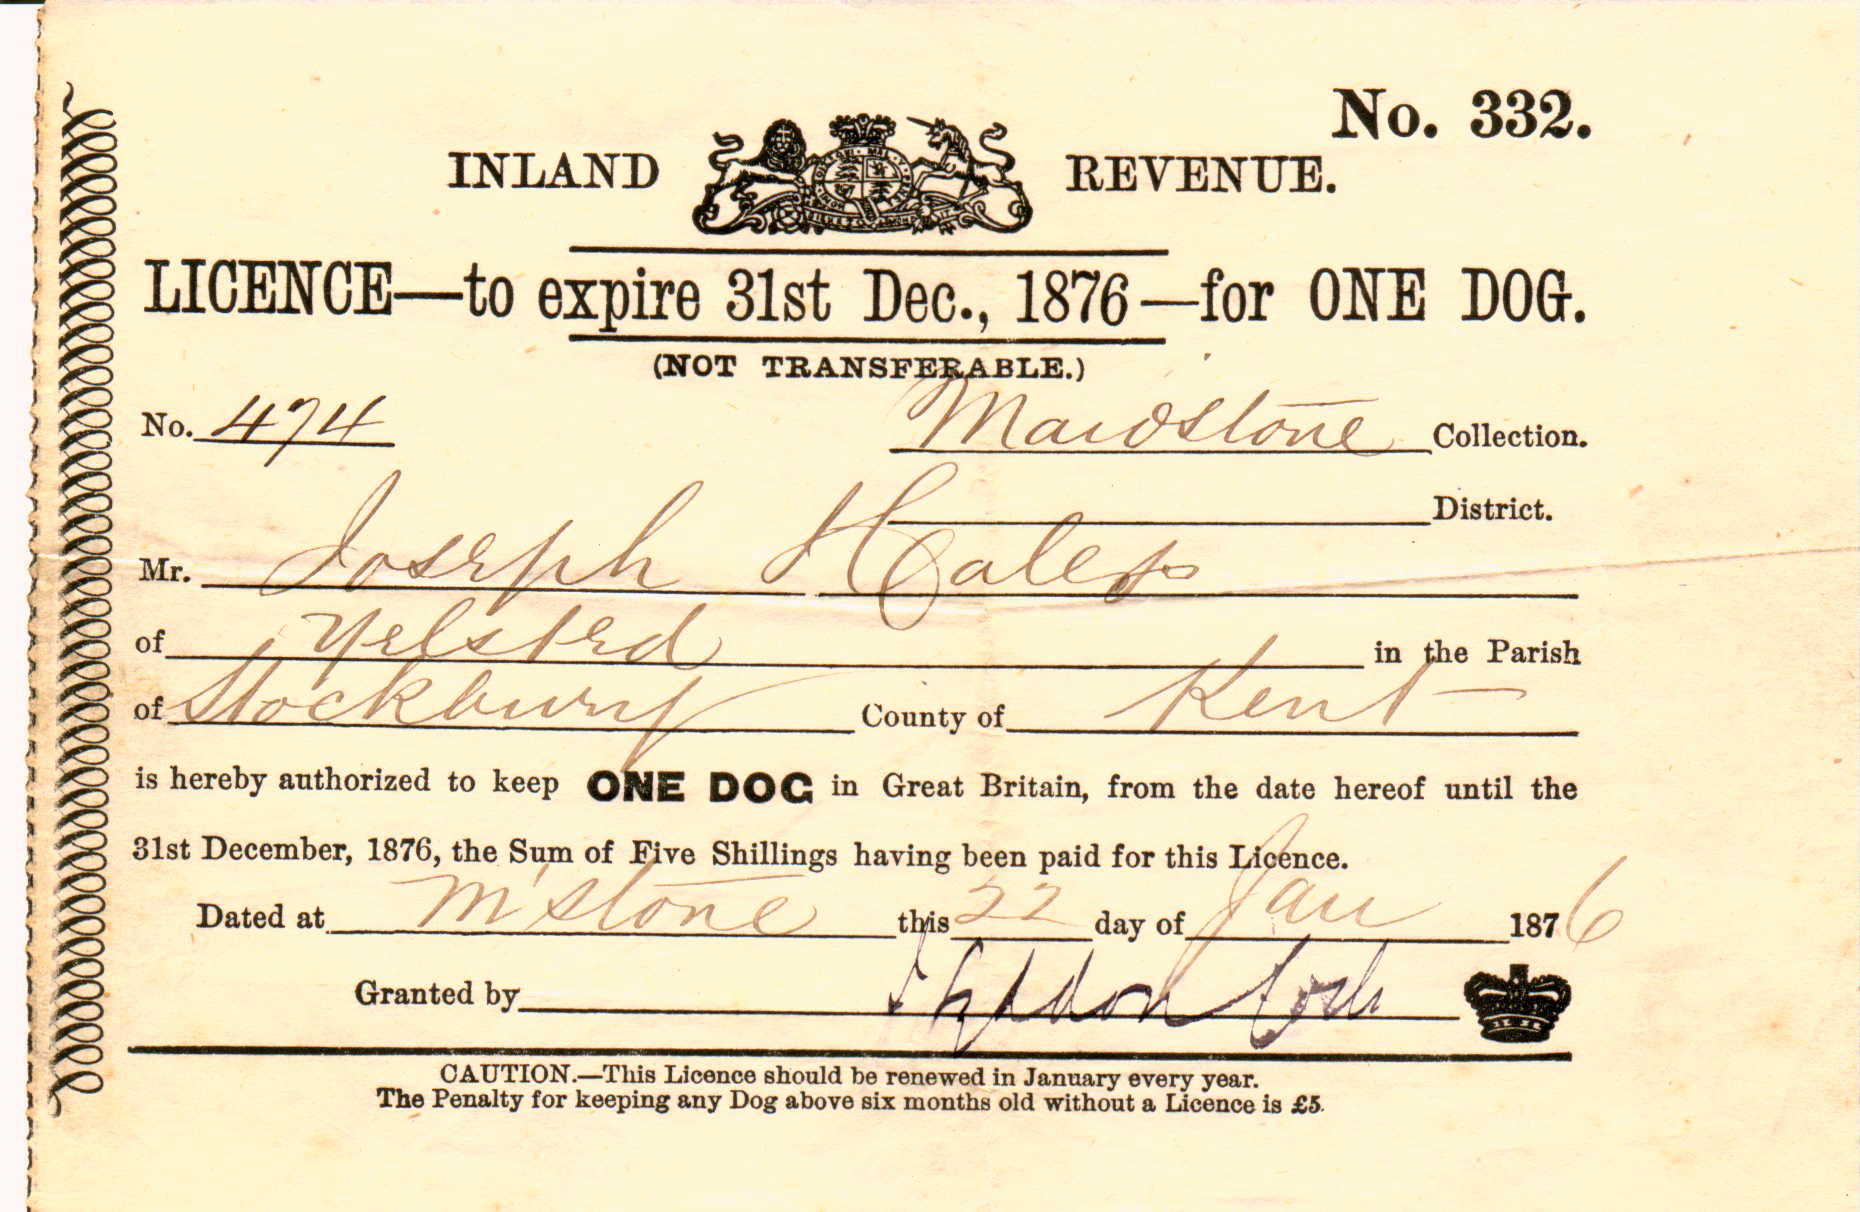 No. 332.
INLAND REVENUE.
LICENCE—to expire 31st Dec., 1876—for ONE DOG.
(NOT TRANSFERABLE.)
No. 474 Maidstone Collection.
District.
Mr. Joseph Hales
of Yelsted in the Parish
of Stockbury County of Kent
is hereby authorized to keep ONE DOG in Great Britain, from the date hereof until the
31st December, 1876, the Sum of Five Shillings having been paid for this Licence.
Dated at M'stone this 22 day of Jan 1876
Granted by
CAUTION.—This Licence should be renewed in January every year.
The Penalty for keeping any Dog above six months old without a Licence is £5.